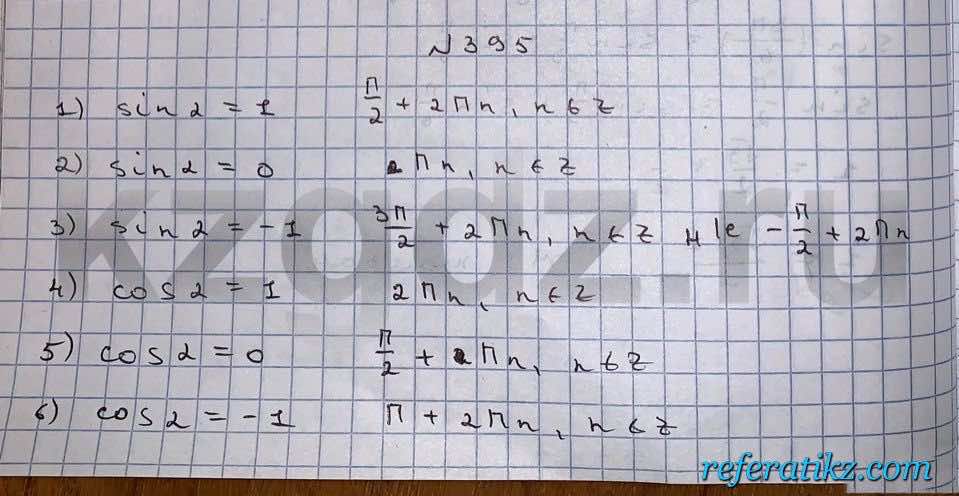 N395
1) sin α = 1 π/2 + 2πn, n ∈ Z
2) sin α = 0 πn, n ∈ Z
3) sin α = -1 3π/2 + 2πn, n ∈ Z -π/2 + 2πn
4) cos α = 1 2πn, n ∈ Z
5) cos α = 0 π/2 + πn, n ∈ Z
6) cos α = -1 π + 2πn, n ∈ Z
kzgdz.ru
referatikz.com